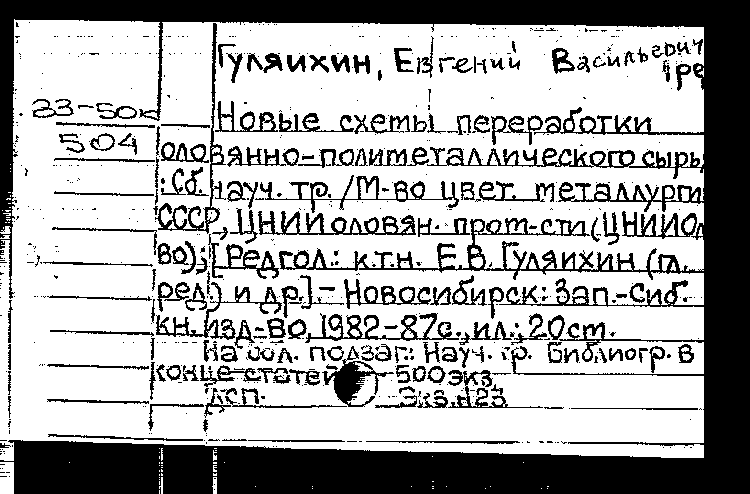 Гуляихин, Евгений Васильевич
23-50к
Новые схемы переработки
504
оловянно-полиметаллического сырья
: Сб. науч. тр. /М-во цвет. металлурги
СССР, ЦНИИ оловян. пром-сти (ЦНИИОл
во); [Редгол.: к.т.н. Е.В. Гуляихин (гл.
ред.) и др.].-Новосибирск: Зап.-Сиб.
кн. изд-во, 1982.-87с., ил.; 20 cm.
На подзаг.: Науч. тр. Библиогр. в
конце статей 500 экз.
ДСП. Экз.н23